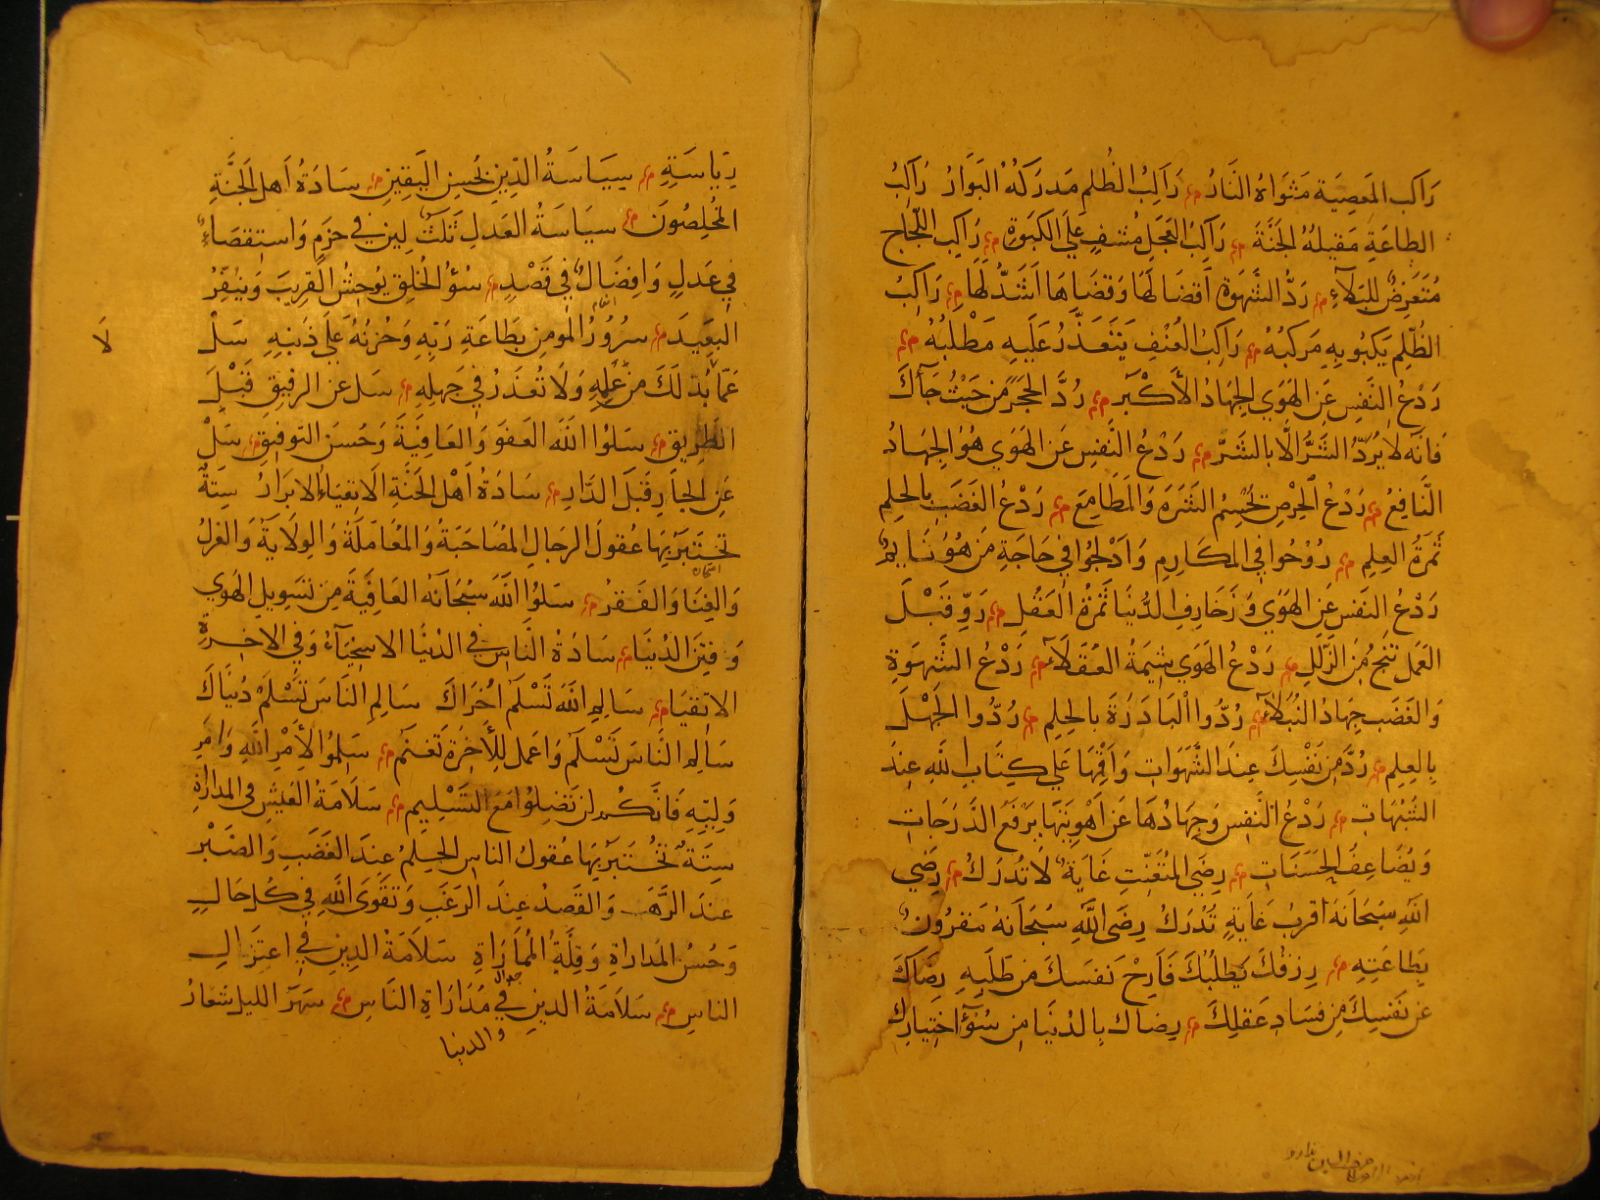 رَاكب المَعصِيَة مَثوَاهُ النَارُ رَاكِبُ الظُلم مَدرَكهُ البَوَارُ رَاكبُ
الطاعَةِ مَقيلهُ الجَنَّةَ رَاكِبُ العَجَلِ مُشفٍ عَلَى الكَبوَةِ رَاكِب اللّجَاج
مُتَعَرِضٌ للبَلآءِ رَدُّ الشَّهوَةِ اَقضَا لهَا وَقضَاهَا اشَدّ لهَا رَاكِبُ
الظُلمِ يَكبُو بِهِ مَركبُهُ رَاكِبُ العُنْفِ يَتَعَذَّرُ عَلَيهِ مَطْلبُهُ
رَدْعُ النَفسِ عَن الهَوَي الجِهَادُ الأكْبَر رُدَّ الحَجَرَ من حَيْثُ جَآكَ
فَانّه لا يُرَدُّ الشَرُّ الّا بالشَرَّ رَدْعُ النَّفسِ عَن الهَوَي هُوَ الجِهَادُ
النَّافِعُ رَدْعُ الحِرْصِ يَحْسِمُ الشَرَه وَالمَطَامِعَ رَدْعُ الغَضَبِ بالحِلمِ
ثَمرَةُ العِلمِ رُوْحُوا في المكَارِمِ وَادْلجُوا فِي حَاجَةِ مَن هُوَ نَايمٌ
رَدْعُ النَفسِ عَنِ الهَوَي وَزَخَارِفِ الدُنيَا ثَمرَةُ العَقْلِ رَوِّ قَبْلَ
العَمَلِ تَنجُ مِنَ الزَّلَلِ رَدْعُ الهَوَي شِيمَةُ العُقَلآءِ رَدْعُ الشَّهوَةِ
وَالغَضَبِ جِهَادُ النُبَلآءِ رُدُّوا الْبَادَرَةَ بالحِلمِ رُدُّوا الجَهْلَ
بالعِلمِ رُدَّ مِن نَفْسِكَ عِندَ الشَّهَوَاتِ وَاَقِمْهَا عَلَي كِتَابِ اللّه عِندَ
الشبُهَاتِ رَدْعُ النَفسِ وَجِهَادُهَا عَن اَهْوِيَتِهَا يَرْفَعُ الدَرَجَاتِ
وَيُضَاعِفُ الحَسَنَاتِ رِضَي المُتَعَنِّتِ غَايَةٌ لَا تُدرَكُ رِضَي
اللّه سُبحَانَهُ اقرَبُ غَايَةٍ تُدْرَكُ رِضَي اللّهِ سُبحَانَهُ مَقرُونٌ
بِطَاعَتِهِ رِزقُكَ يَطلبُكَ فَارِحْ نَفسَكَ مِن طَلَبِهِ رِضَاكَ
عَن نَفسِكَ مِن فسَادِ عَقلِكَ رِضاكَ بالدنيَا مِن سُؤِ اختِيَارِكَ
رِيَاسَةٍ سِيَاسَةُ الدِّينِ بحُسنِ اليَقينِ سَادَةُ اَهل الجَنَّةِ
المُخلِصُونَ سيَاسَةُ العَدلِ ثَلَثٌ لِين في حَزم وَاستِقصَاءٌ
فِي عَدلٍ وَافضَالٌ في قَصْدٍ سُؤ الخُلق يُوحِشُ القَريبَ وَينفِّرُ
البَعِيدَ سرُورُ المومِن بِطَاعَةِ رَبّهِ وَحُزنُهُ عَلَي ذَنبِهِ سَلْ
عَمّا لَا بُدّ لَكَ مِن عِلمِهِ وَلَا تُعذَرُ فِي جَهلِهِ سَل عن الرفيق قَبْلَ
الطريق سَلوُا اللّهَ العَفوَ وَالعَافِيَةَ وَحُسنَ التوفيقِ سَلْ
عَن الجَارِ قَبلَ الدَّارِ سَادَةُ اَهْل الجَنّةِ الاتقيَاءُ الابرَارُ ستّةٌ
تُختَبَرُ بِهَا عُقُولُ الرجَالِ المُصَاحَبَةُ وَالمُعَامَلَةُ وَالوِلَايَةُ وَالعَزلُ
امتحان
وَالغِنَا وَالفَقرُ سَلوُا اللّهَ سُبحَانَه العَافِيَةَ مِن تَسويل الهَوي
وَ فِتَنِ الدُنيَا سَادَةُ النَّاسِ في الدنيَا الاسخِيَآءُ وَفي الاخرَةِ
الاتقيَاءِ سَالِمِ اللّهَ تَسْلَم اُخرَاكَ سَالِمِ النّاسَ تَسْلَمْ دُنيَاكَ
سَالِمِ النَّاسَ تَسْلَمْ وَاعمل لِلآخِرَةِ تَغنَم سَلِمُوا لأمْرِ اللّهِ وَامرِ
وَلِيّهِ فَانّكُم لن تَضِلوُا مَعَ التَسْلِيمِ سَلَامَةُ العَيْشِ في المدارَاةِ
سِتَةٌ تُختَبَرُ بهَا عُقولُ الناسِ الحِلمُ عندَ الغَضَبِ وَالصَّبْر
عندَ الرَّهَبِ وَالقَصدُ عِندَ الرَغَبِ وَتقَوَى اللّهِ فِي كُلّ حَالٍ
وَحُسنُ المُدَاراةِ وَقِلَّةُ المُمَارَاةِ سَلَامَةُ الدِينِ فِي اعتزَالِ
الناسِ سَلَامَةُ الدينِ وَالدنيا فِي مُدَارَاةِ النَاسِ سَهَرُ الليل شعَارُ
والدنيا
لَا